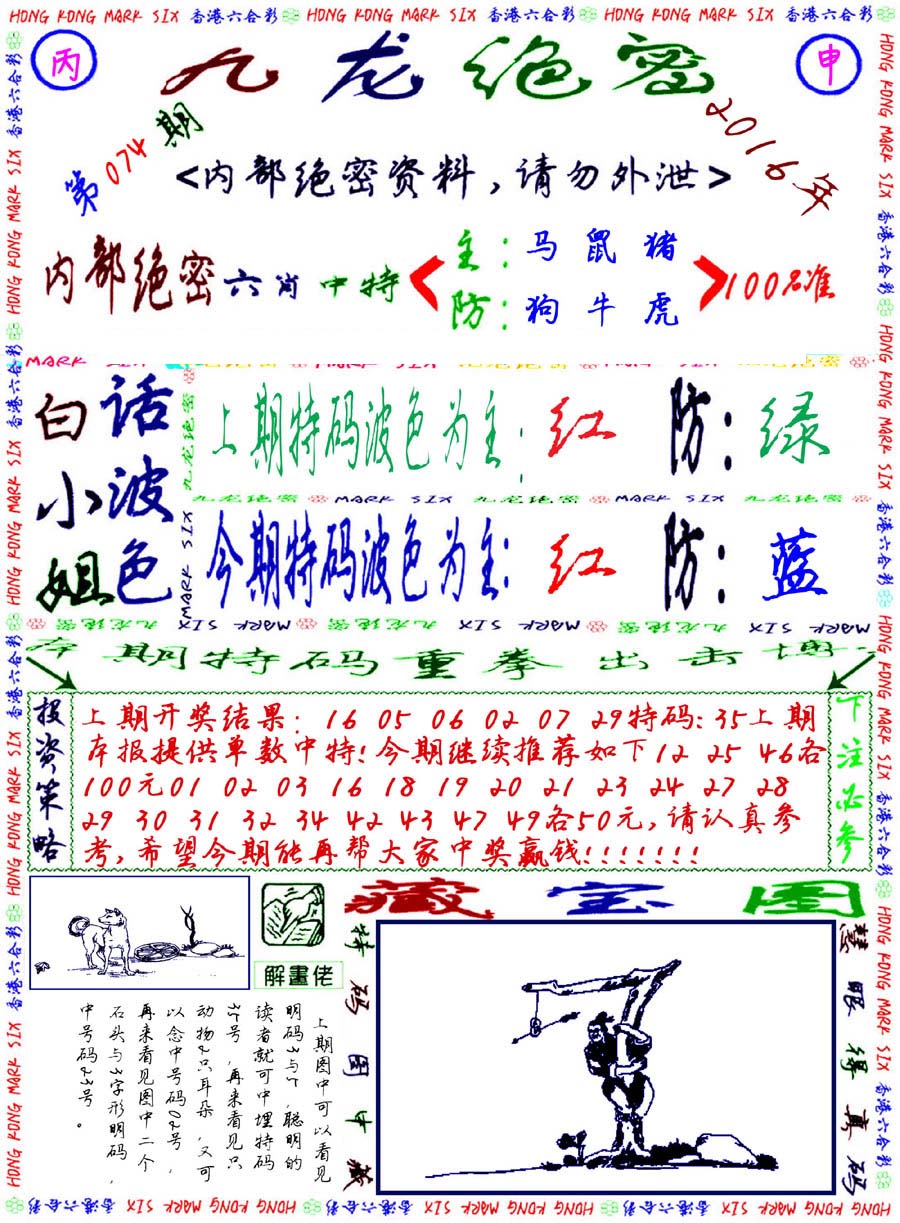 HONG KONG MARK SIX 香港六合彩 HONG KONG MARK SIX 香港六合彩 HONG KONG MARK SIX 香港六合彩
丙
九龙绝密
申
第074期
2016年
<内部绝密资料,请勿外泄>
内部绝密六肖中特
主:马鼠猪
防:狗牛虎
100%准
白话小姐
波色
上期特码波色为主:红 防:绿
九龙绝密 MARK SIX 九龙绝密 MARK SIX 九龙绝密
今期特码波色为主:红 防:蓝
九龙绝密 MARK SIX 九龙绝密 MARK SIX 九龙绝密 MARK SIX
本期特码重拳出击
投资策略
上期开奖结果: 16 05 06 02 07 29特码:35上期
本报提供单数中特!今期继续推荐如下12 25 46各
100元01 02 03 16 18 19 20 21 23 24 27 28
29 30 31 32 34 42 43 47 49各50元,请认真参
考,希望今期能再帮大家中奖赢钱!!!!!!!
下注必参
藏宝图
解畫佬
特码图中藏
慧眼得真码
上期图中可以看见
明码3与7,聪明的
读者就可中埋特码
37号,再来看见只
动物2只耳朵,又可
以念中号码02号,
再来看见图中二个
石头与3字形明码,
中号码23号。
HONG KONG MARK SIX 香港六合彩 HONG KONG MARK SIX 香港六合彩 HONG KONG MARK SIX 香港六合彩